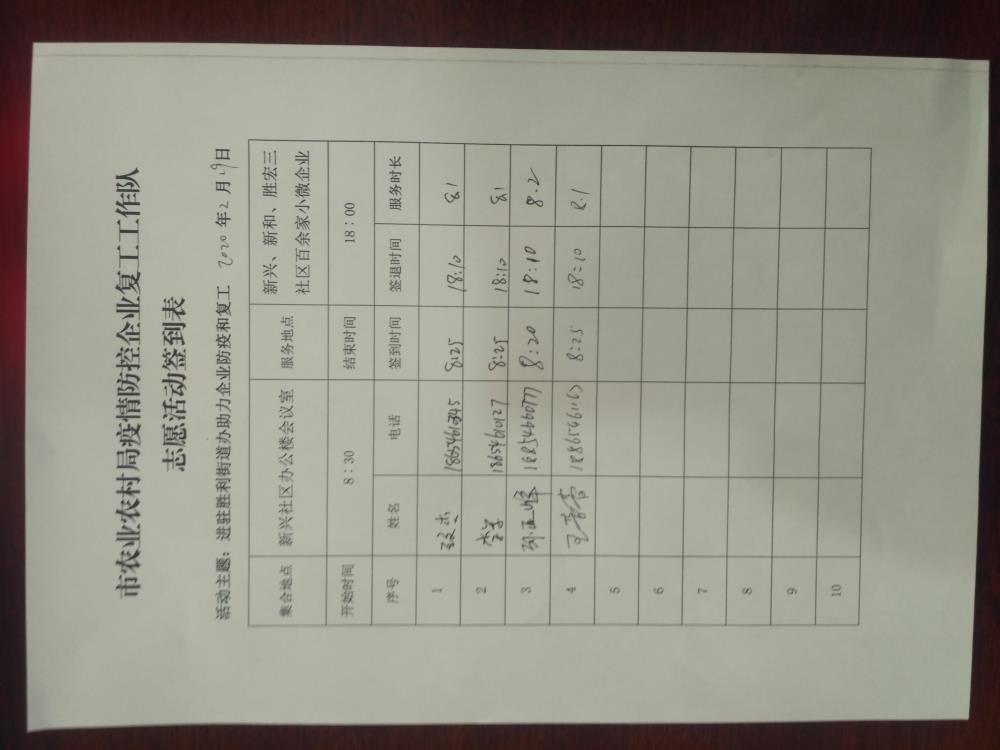 市农业农村局疫情防控企业复工工作队
志愿活动签到表
活动主题：进驻胜利街道办助力企业防疫和复工 2020 年 2 月 19 日
集合地点 新兴社区办公楼会议室 服务地点 新兴、新和、胜宏三社区百余家小微企业
开始时间 8：30 结束时间 18：00
序号 姓名 电话 签到时间 签退时间 服务时长
1 8:25 18:10 8.1
2 李军 18654610127 8:25 18:10 8.1
3 18854660777 8:20 18:10 8.2
4 8:25 18:10 8.1
5
6
7
8
9
10